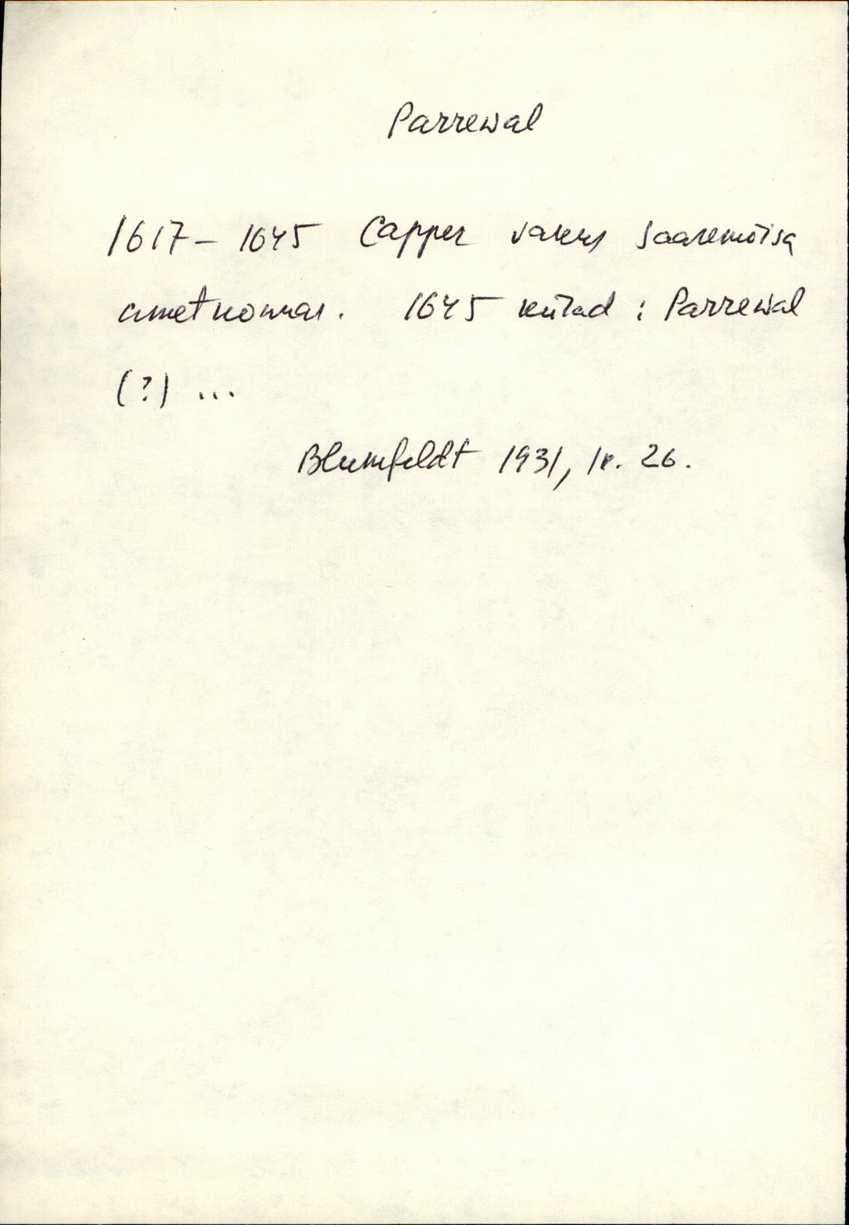 Parrewal
1617 - 1645 Capper vakus Saaremõisa
ametkonnas. 1645 külad : Parrewal
(?) ...
Blumfeldt 1931, lk. 26.